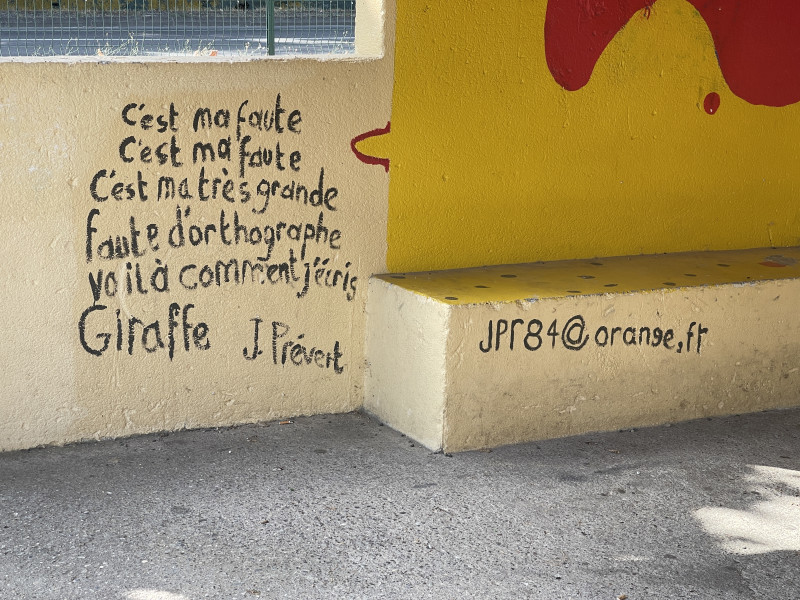 c'est ma faute
C'est ma faute
C'est ma très grande
faute d'orthographe
voilà comment j'écris
Giraffe
J. Prévert
JPr84@orange.fr